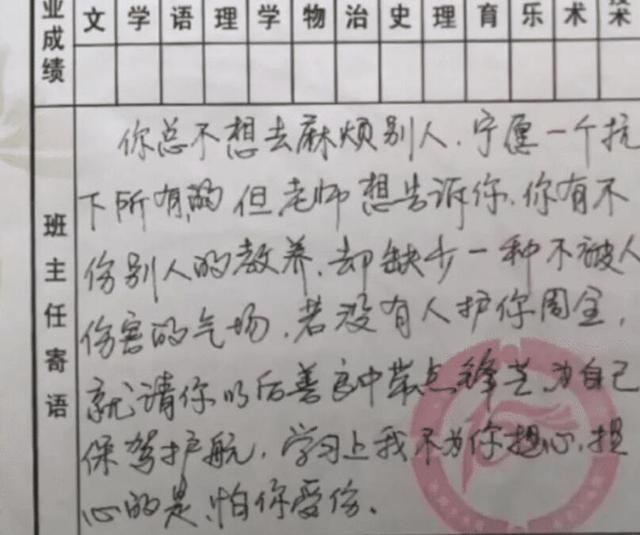 业成绩
文 学 语 理 学 物 治 史 理 育 乐 术 技术
班主任寄语
你总不想去麻烦别人.宁愿一个抗
下所有的但老师想告诉你.你有不
伤别人的教养.却缺少一种不被人
伤害的气场.若没有人护你周全,
就请你以后善良中带点锋芒.为自己
保驾护航.学习上我不为你担心.担
心的是、怕你受伤.